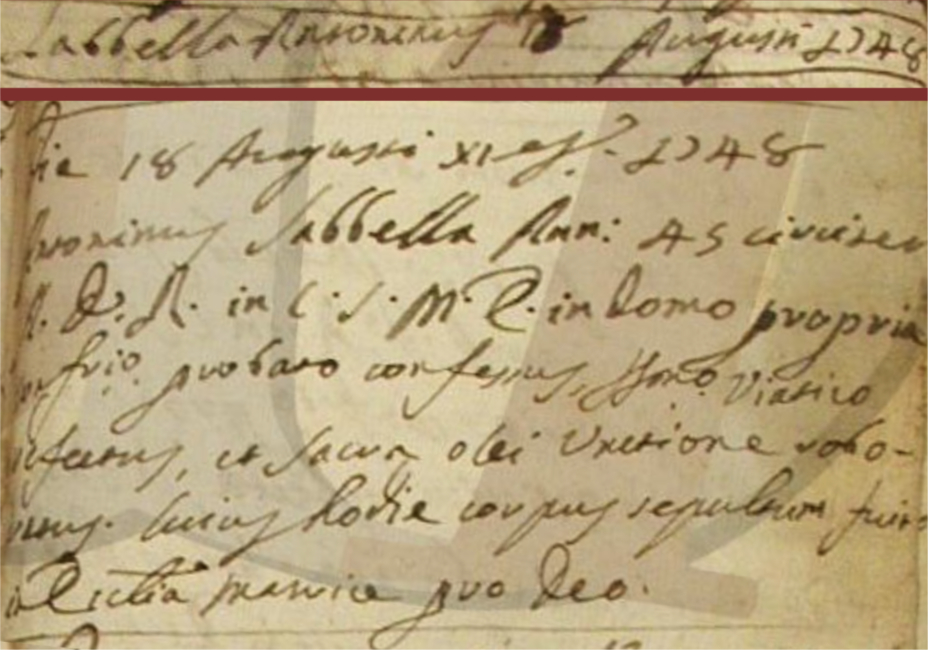 Sabbella Antoninus 18 Augusti 1748
Die 18 Augusti XI 1748
Antoninus Sabbella Ann: 45 circiter
A. D. R. in C. S. M. E. in domo propria
probato confessus, SSmo Viatico
refectus, et Sacra olei Unctione robo-
ratus. Cuius hodie corpus sepultum fuit
in Ecclia matrice pro Deo.